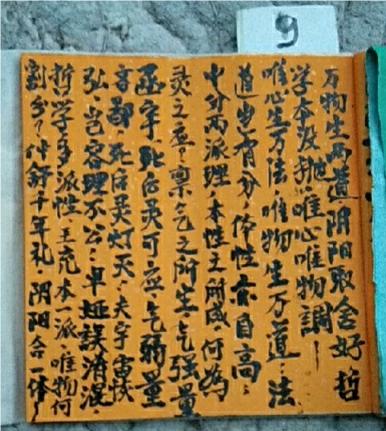 9
万物生两道阴阳取舍好哲
学本没唯心唯物調
唯心生万法唯物生万道·法
道岂有分·体性亦自高·
中外两派理·本性之所成·何為
灵之应·禀气之所生·气强量
函宇·死后灵可应·气弱量
言鄙·死后灵灯灭·夫宇宙恢
弘·岂容理不公·卓娅誤淆混·
哲学多派性·王充本一派·唯物何
割分·千年礼·阴阳合一体